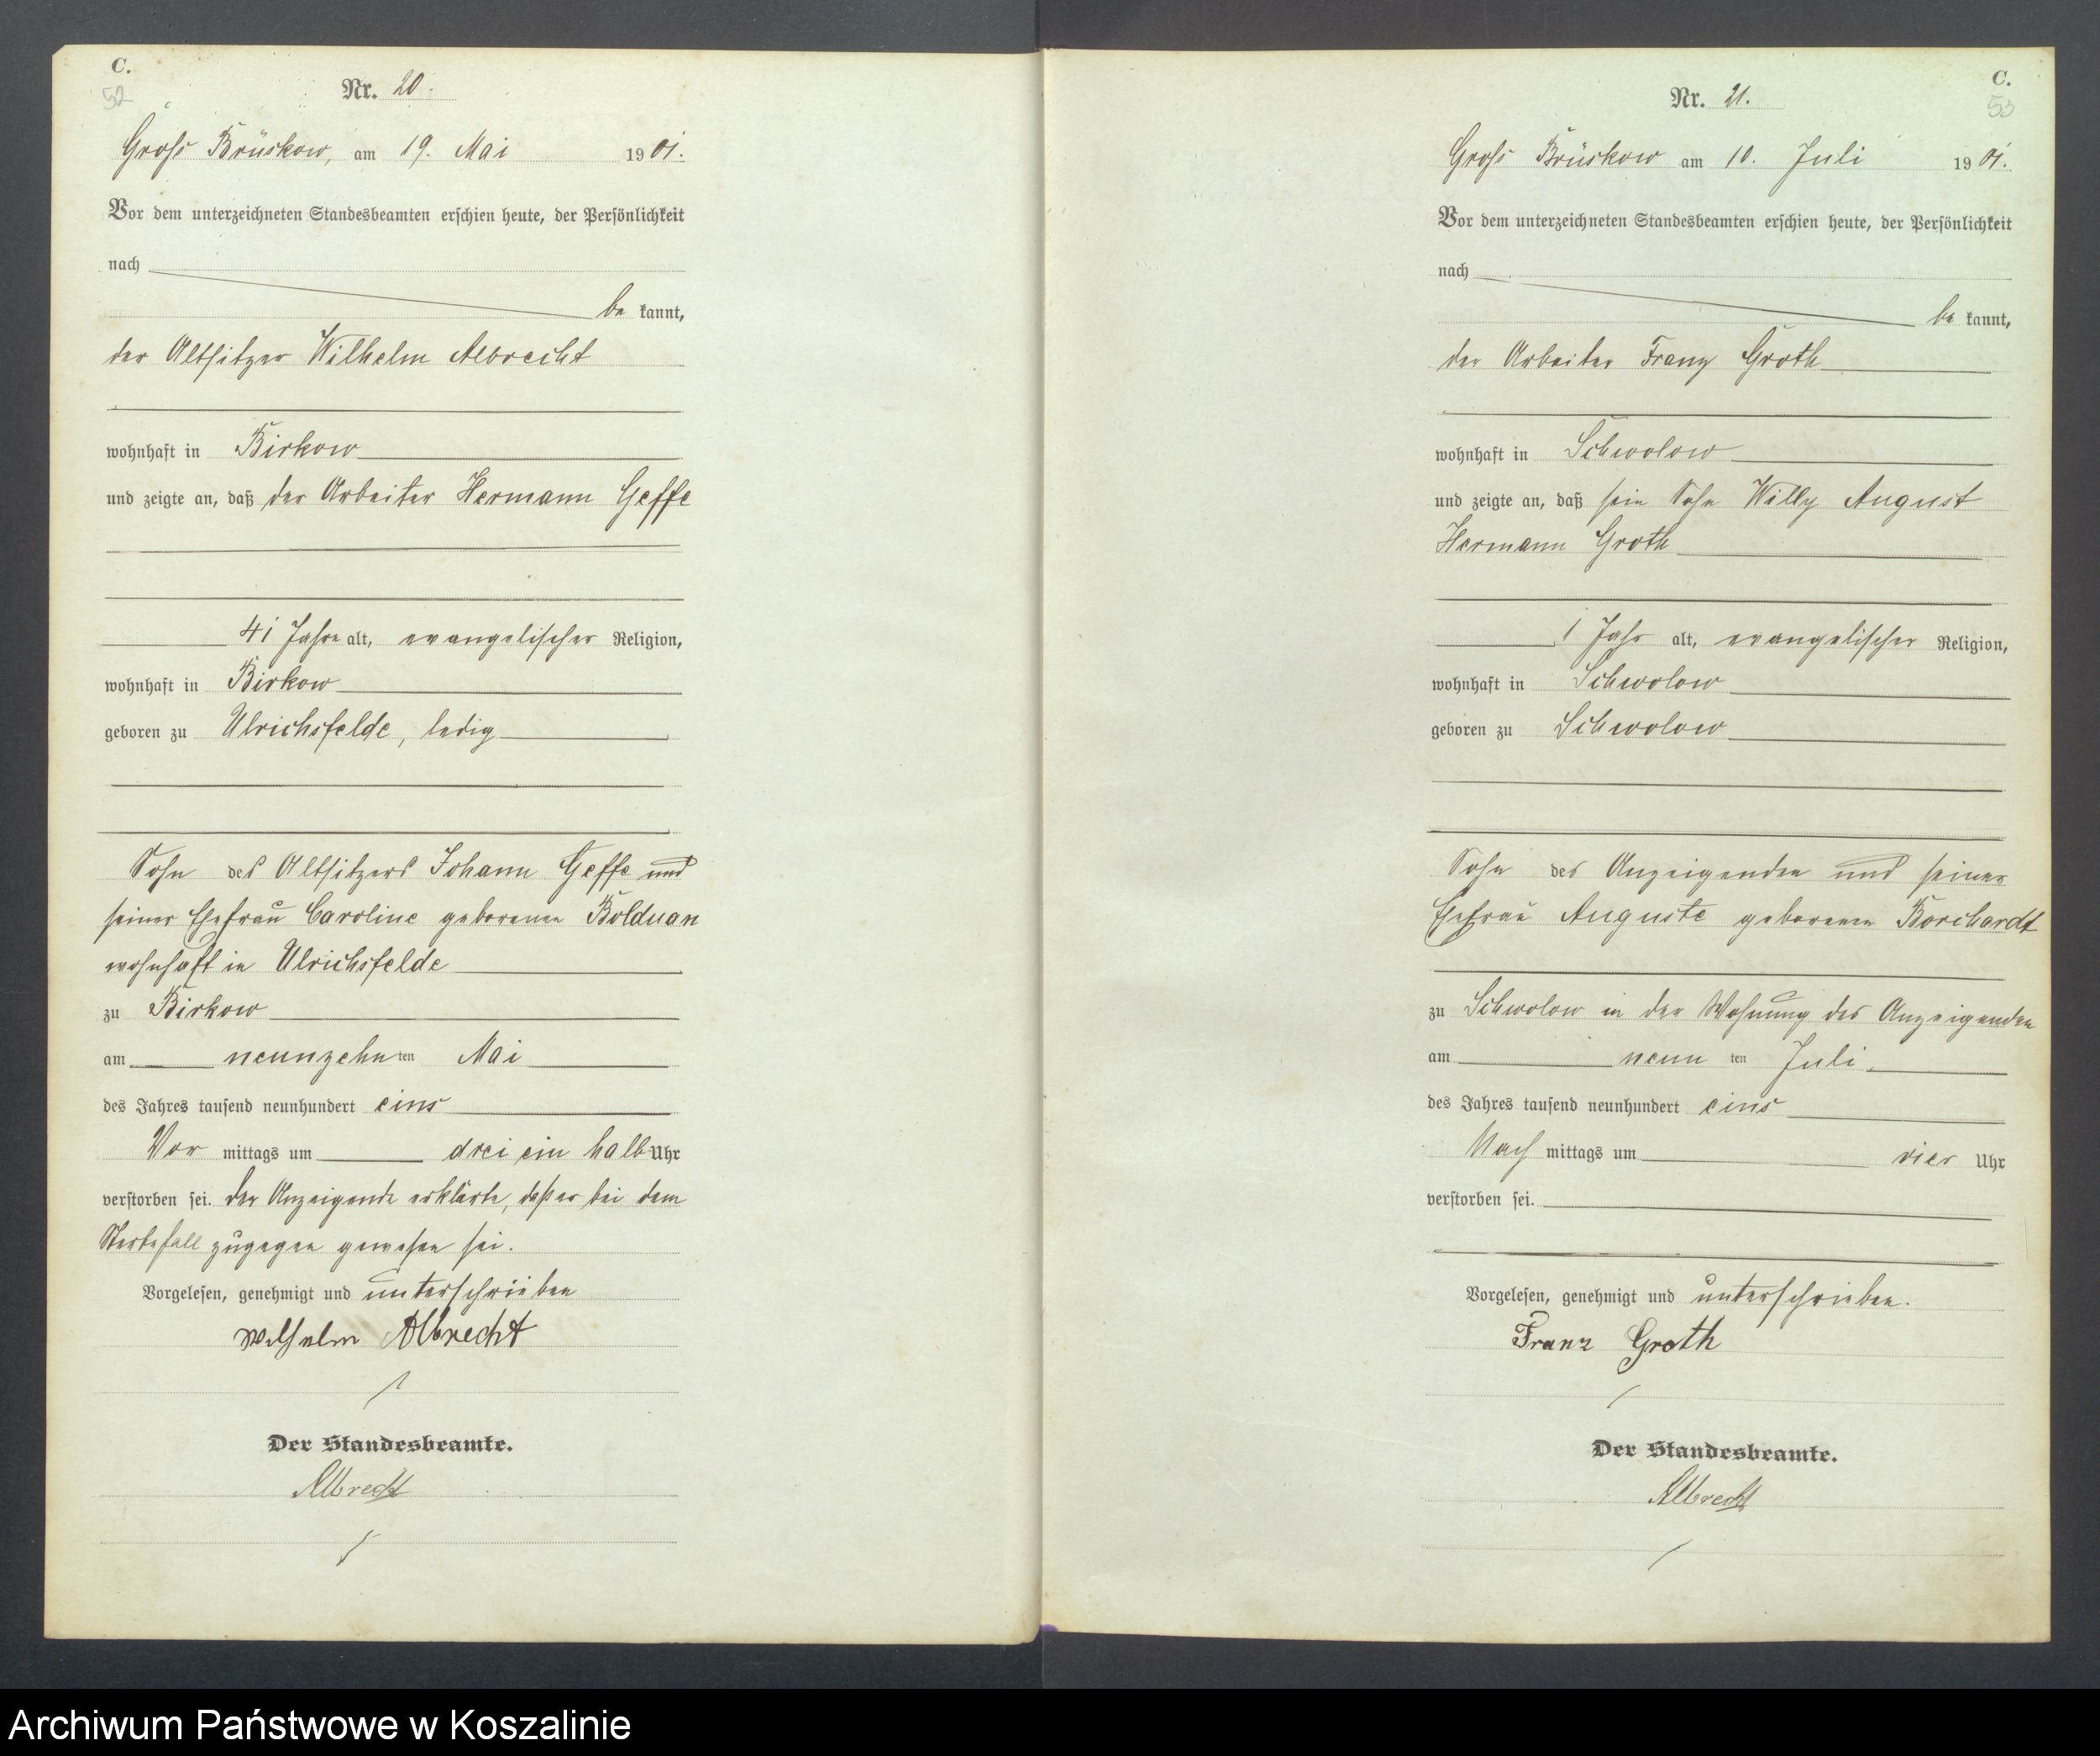 C.
52
Nr. 20.
Gross Brüskow, am 19. Mai 1901.
Vor dem unterzeichneten Standesbeamten erschien heute, der Persönlichkeit
nach
be kannt,
der Altsitzer Wilhelm Albrecht
wohnhaft in Birkow
und zeigte an, daß der Arbeiter Hermann Geffe
41 Jahre alt, evangelischer Religion,
wohnhaft in Birkow
geboren zu Ulrichsfelde, ledig
Sohn des Altsitzers Johann Geffe und
seiner Ehefrau Caroline geborenen Bolduan
wohnhaft in Ulrichsfelde
zu Birkow
am neunzehn ten Mai
des Jahres tausend neunhundert eins
Vor mittags um drei ein halb Uhr
verstorben sei. Der Anzeigende erklärte, daß er bei dem
Sterbefall zugegen gewesen sei.
Vorgelesen, genehmigt und unterschrieben
Wilhelm Albrecht
Der Standesbeamte.
Albrecht
C.
53
Nr. 21.
Gross Brüskow am 10. Juli 1901.
Vor dem unterzeichneten Standesbeamten erschien heute, der Persönlichkeit
nach
be kannt,
der Arbeiter Franz Groth
wohnhaft in Schwolow
und zeigte an, daß sein Sohn Willy August
Hermann Groth
1 Jahr alt, evangelischer Religion,
wohnhaft in Schwolow
geboren zu Schwolow
Sohn des Anzeigenden und seiner
Ehefrau Auguste geborenen Borchardt
zu Schwolow in der Wohnung des Anzeigenden
am neun ten Juli
des Jahres tausend neunhundert eins
Nach mittags um vier Uhr
verstorben sei.
Vorgelesen, genehmigt und unterschrieben.
Franz Groth
Der Standesbeamte.
Albrecht
Archiwum Państwowe w Koszalinie